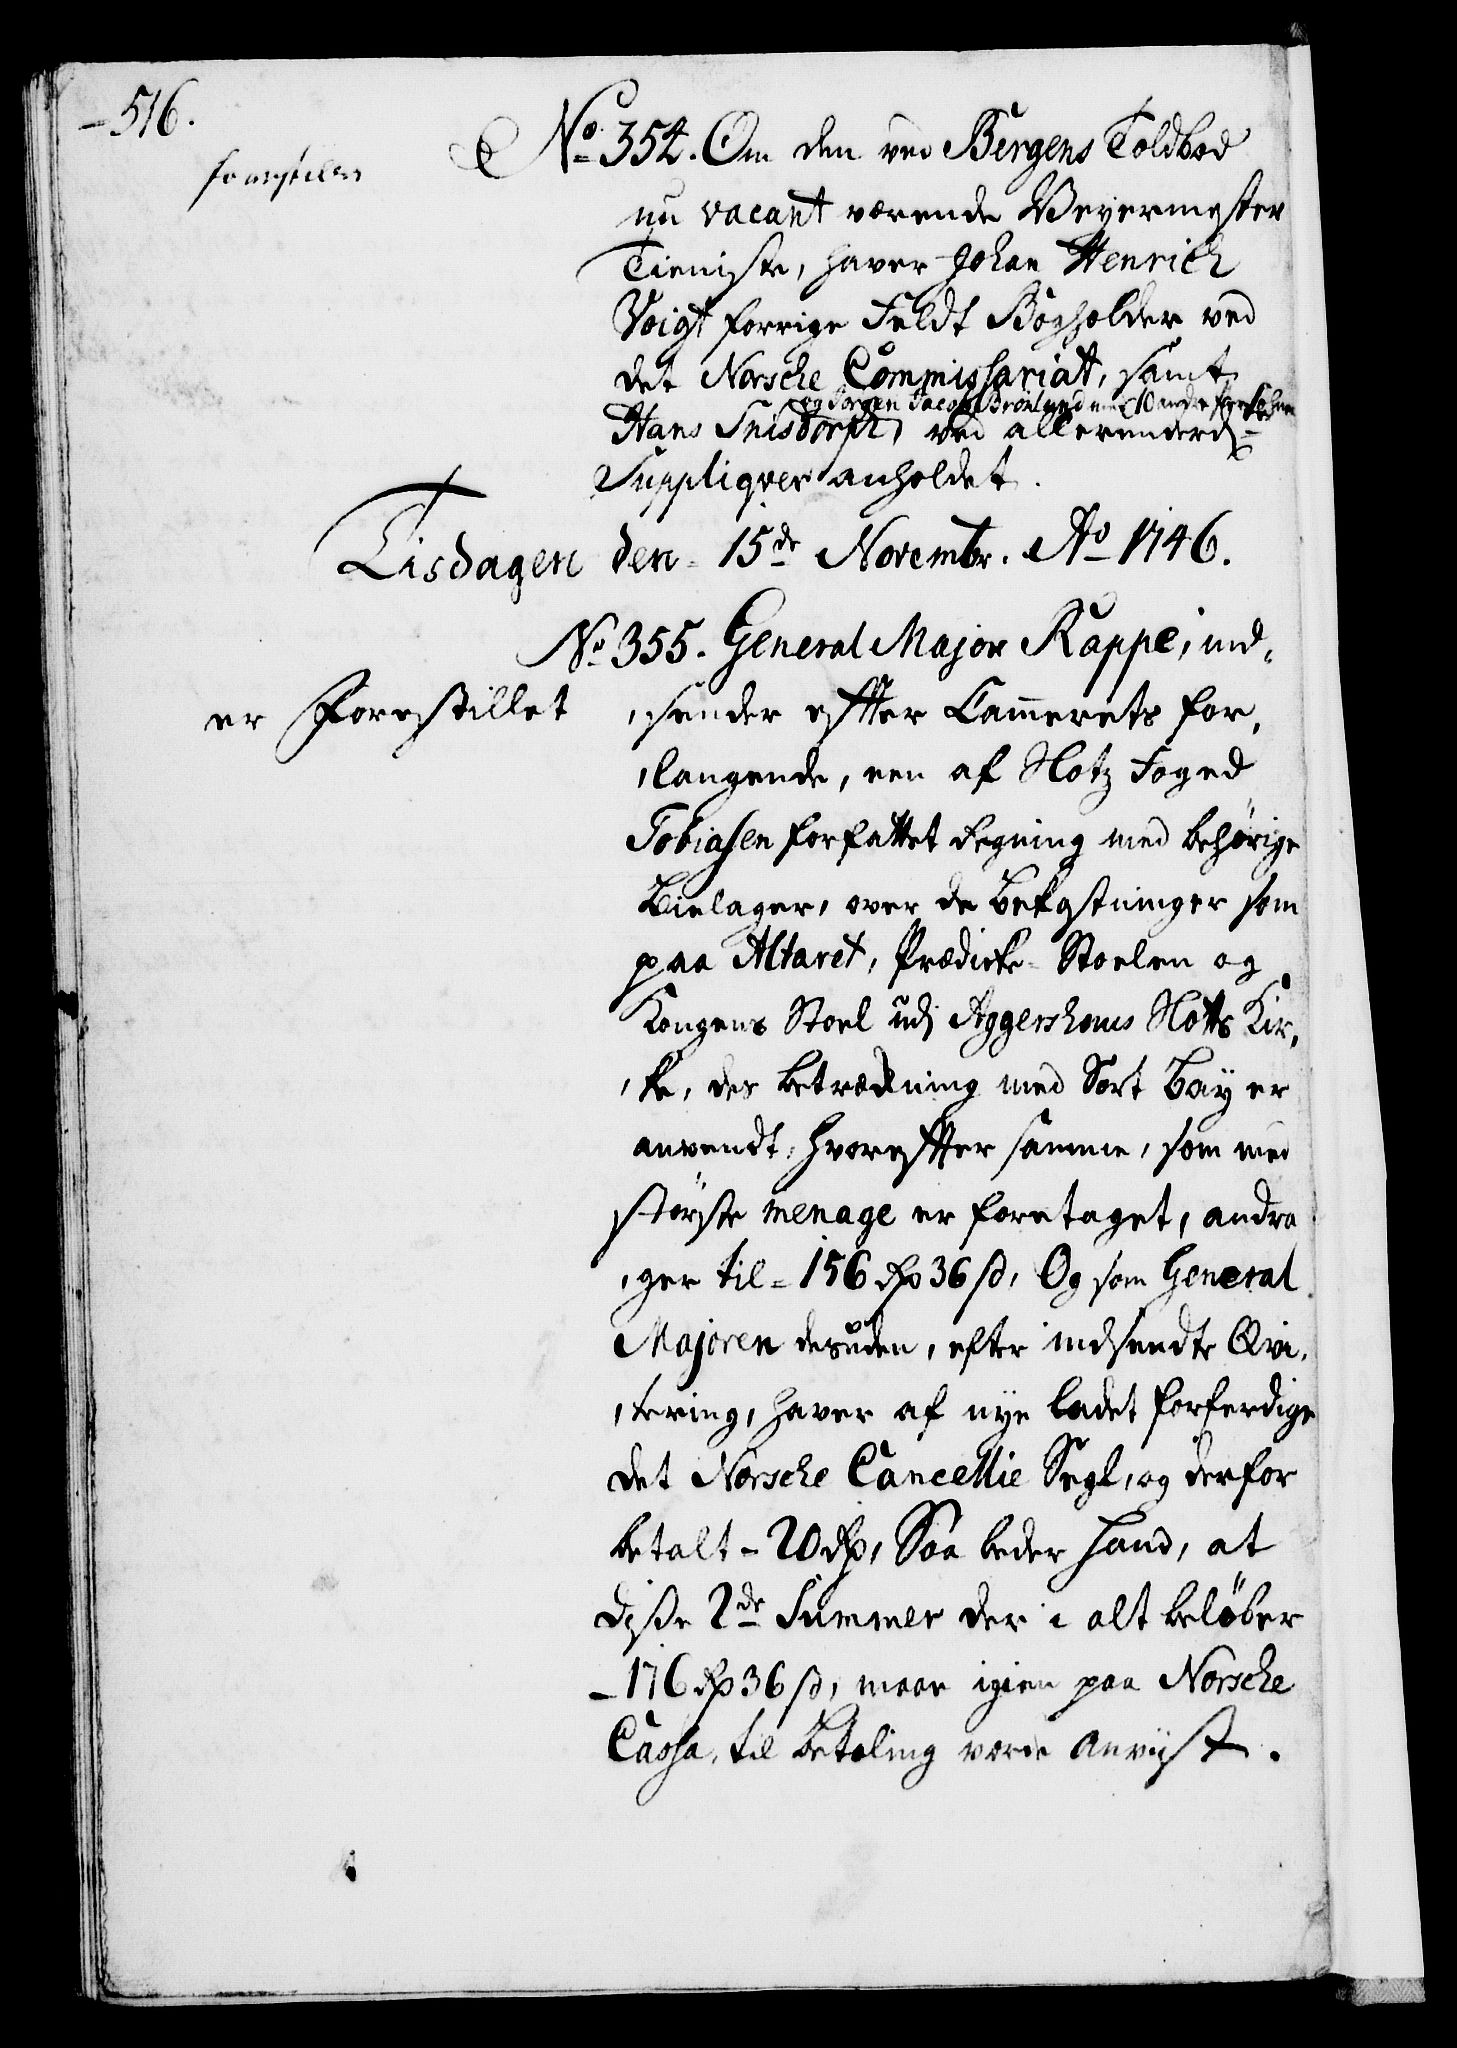 516.
forestilles
No 354. Om den ved Bergens Toldbod
nu vacant værende Veyermester
Tieniste, haver Johan Henrich
Voigt forrige Feldt Bogholder ved
det Norsche Commissariat, samt
og Jorgen Jacob Brønlund med 10 andre
Hans Snisdorph, ved allerunderd:
Suppliqver anholdet.
Tisdagen den 15de Novembr. Ao 1746.
No 355. General Major Rappe, ind-
er Forestillet
sender effter Cammerets for,
langende, een af Slotz Foged
Tobiasen forfattet Regning med behörige
Bielager, over de Bekostninger som
paa Altaret, Prædicke Stoelen og
Kongens Stoel udj Aggershuus Slotts Kir,
ke, des betrækning med Sort Bay er
anvendt, hvoreffter samme, som med
störste menage er foretaget, andra
ger til 156 rdr 36 s, Og som General
Majoren desuden, efter indsendte Qvi,
tering, haver af nye ladet forferdige
det Norsche Cancellie Segl, og derfor
betalt 20 rdr, Saa beder hand, at
disse 2de Summer der i alt belöber
176 rdr 36 s, maae igien paa Norsche
Cassa, til Betaling vorde anviist.